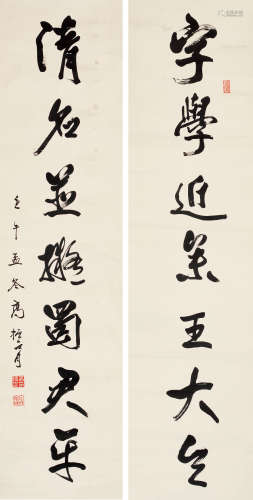 字學近王大令
清名並擬蜀君平
壬午孟冬高振霄